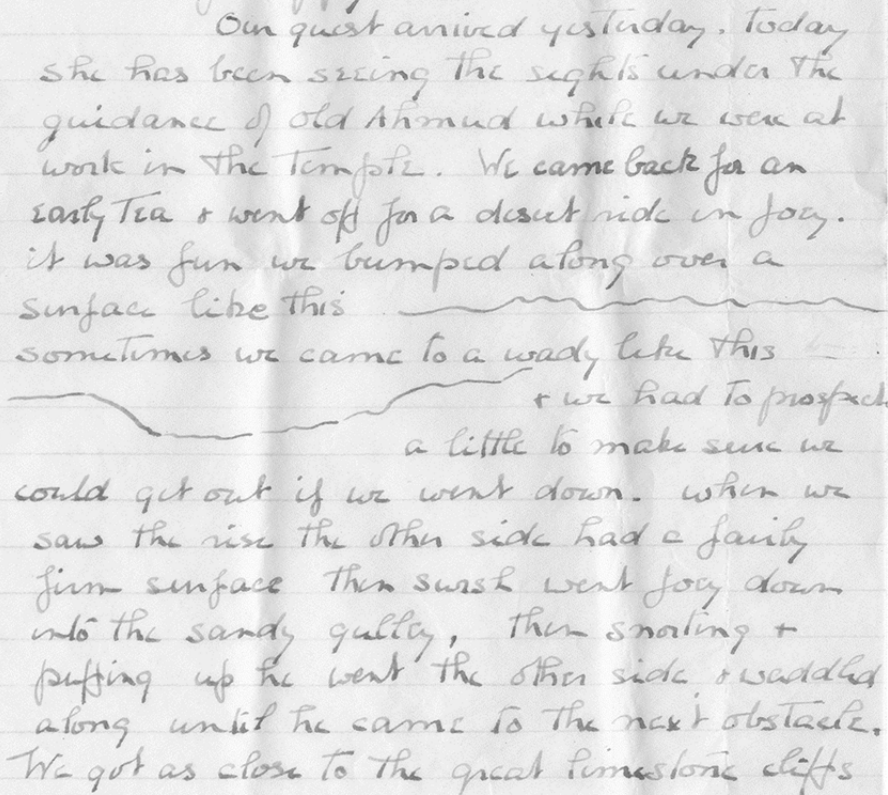 Our guest arrived yesterday. Today
she has been seeing the sights under the
guidance of old Ahmud while we were at
work in the Temple. We came back for an
early Tea & went off for a desert ride in Joey.
it was fun we bumped along over a
surface like this
sometimes we came to a wady like this
+ we had to prospect
a little to make sure we
could get out if we went down. when we
saw the rise the other side had a fairly
firm surface then swish went Joey down
into the sandy gulley, then snorting +
puffing up he went the other side & waddled
along until he came to the next obstacle.
We got as close to the great limestone cliffs